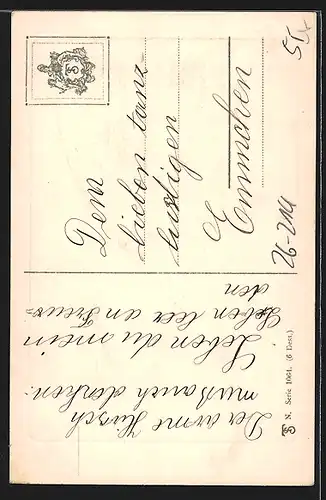 Dem
lieben tanz-
lustigen
Emmchen
26-214
Der arme Hirsch
muß auch denken:
Leben du mein
Leben leer an Freu-
den
T S N. Serie 1064. (6 Dess.)